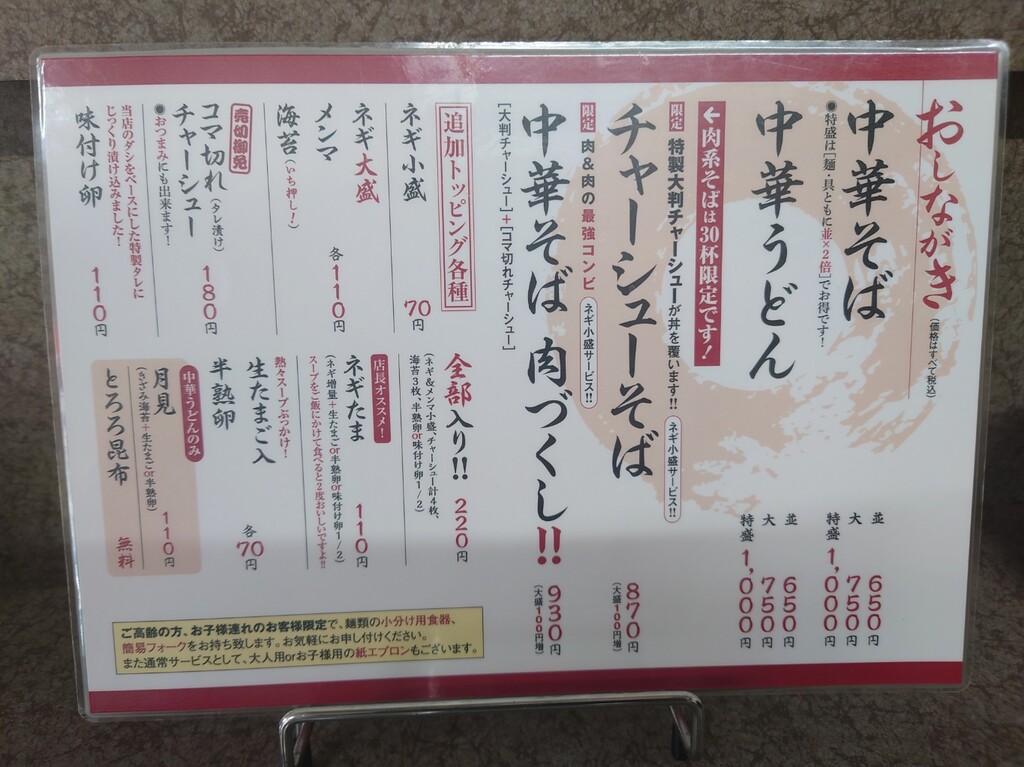 おしながき
(価格はすべて税込)
中華そば
並 650円
大 750円
特盛 1,000円
●特盛は[麺・具ともに並×2倍]でお得です!
中華うどん
並 650円
大 750円
特盛 1,000円
←肉系そばは30杯限定です!
限定 特製大判チャーシューが丼を覆います!! ネギ小盛サービス!!
チャーシューそば 870円
(大盛100円増)
限定 肉&肉の最強コンビ ネギ小盛サービス!!
中華そば 肉づくし!! 930円
(大盛100円増)
[大判チャーシュー]+[コマ切れチャーシュー]
追加トッピング各種
ネギ小盛 70円
ネギ大盛
メンマ
海苔(いち押し!)
各110円
売切御免
コマ切れ(タレ漬け)
チャーシュー 180円
●おつまみにも出来ます!
当店のダシをベースにした特製タレに
じっくり漬け込みました!
味付け卵 110円
全部入り!! 220円
(ネギ&メンマ小盛、チャーシュー計4枚、
海苔3枚、半熟卵or味付け卵1/2)
店長オススメ!
ネギたま 110円
(ネギ増量+生たまごor半熟卵or味付け卵1/2)
スープをご飯にかけて食べると2度おいしいですよ!!
生たまご入
熱々スープぶっかけ!
半熟卵
各70円
中華うどんのみ
月見 110円
(きざみ海苔+生たまごor半熟卵)
とろろ昆布 無料
ご高齢の方、お子様連れのお客様限定で、麺類の小分け用食器、
簡易フォークをお持ち致します。お気軽にお申し付けください。
また通常サービスとして、大人用orお子様用の紙エプロンもございます。